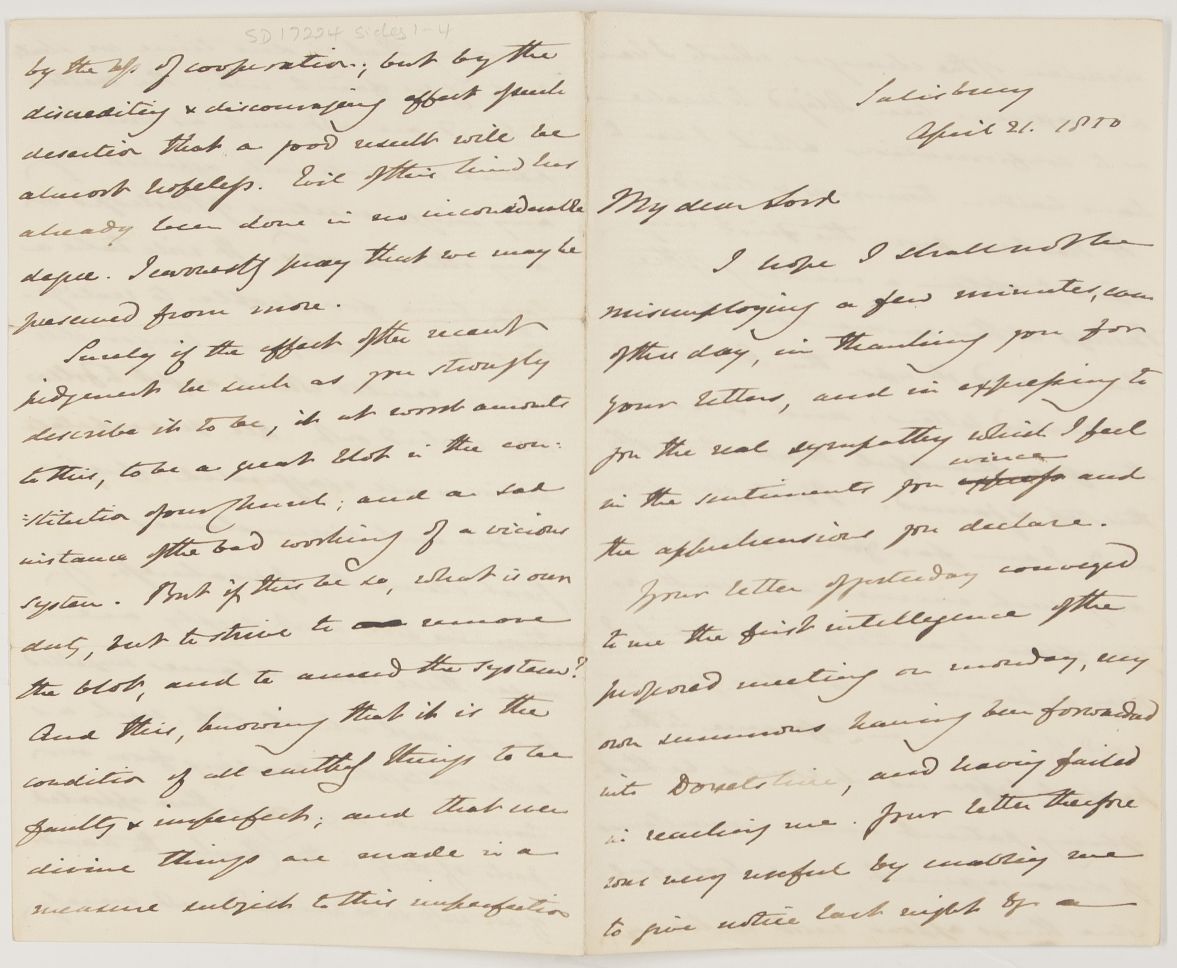 SD17224 sides 1-4
by the loss of cooperation; but by the
discrediting & discouraging effect of such
desertion that a good result will be
almost hopeless. Evil of this kind has
already been done in no inconsiderable
degree. I earnestly pray that we may be
preserved from more.
Surely if the effect of the recent
judgement be such as you strongly
describe it to be, it at worst amounts
to this, to be a great blot in the con:
:stitution of our Church; and a sad
instance of the bad working of a vicious
system. But if this be so, what is our
duty, but to strive to remove
the blot, and to amend the system?
And this, knowing that it is the
condition of all earthly things to be
faulty & imperfect; and that even
divine things are made in a
measure subject to this imperfection
Salisbury
April 21. 1850
My dear Lord
I hope I shall not be
misemploying a few minutes, even
of this day, in thanking you for
your letters, and in expressing to
you the real sympathy which I feel
evince
in the sentiments you express and
the apprehensions you declare.
Your letter of yesterday conveyed
to me the first intelligence of the
proposed meeting on monday, my
own summons having been forwarded
into Dorsetshire, and having failed
in reaching me. Your letter therefore
was very useful by enabling me
to give notice last night of a